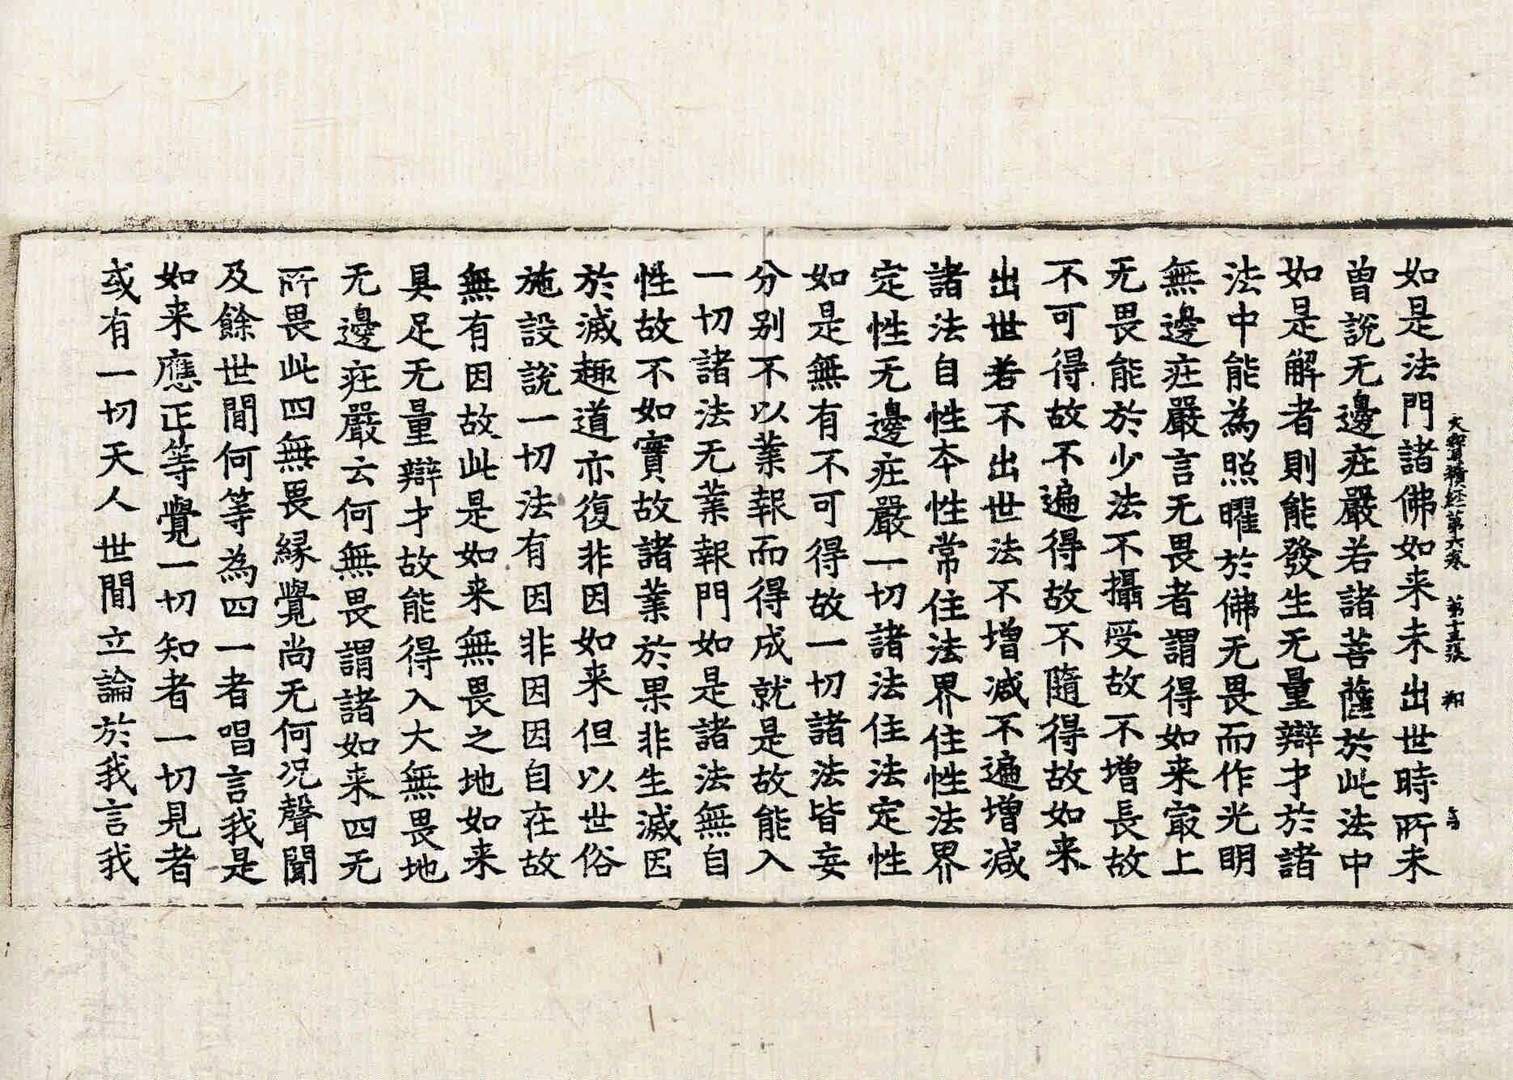 大寶積經第六卷 第十五張 翔
如是法門諸佛如来未出世時所未
曾說无邊疘嚴若諸菩薩於此法中
如是解者則能發生无量辯才於諸
法中能為照曜於佛无畏而作光明
無邊疘嚴言无畏者謂得如来㝡上
无畏能於少法不攝受故不增長故
不可得故不遍得故不隨得故如来
出世若不出世法不增減不遍增減
諸法自性夲性常住法界住性法界
定性无邊疘嚴一切諸法住法定性
如是無有不可得故一切諸法皆妄
分别不以業報而得成就是故能入
一切諸法无業報門如是諸法無自
性故不如實故諸業於果非生滅因
於滅趣道亦復非因如来但以世俗
施設說一切法有因非因因自在故
無有因故此是如来無畏之地如来
具足无量辯才故能得入大無畏地
无邊疘嚴云何無畏謂諸如来四无
所畏此四無畏縁覺尚无何况聲聞
及餘世間何等為四一者唱言我是
如来應正等覺一切知者一切見者
或有一切天人世間立論於我言我